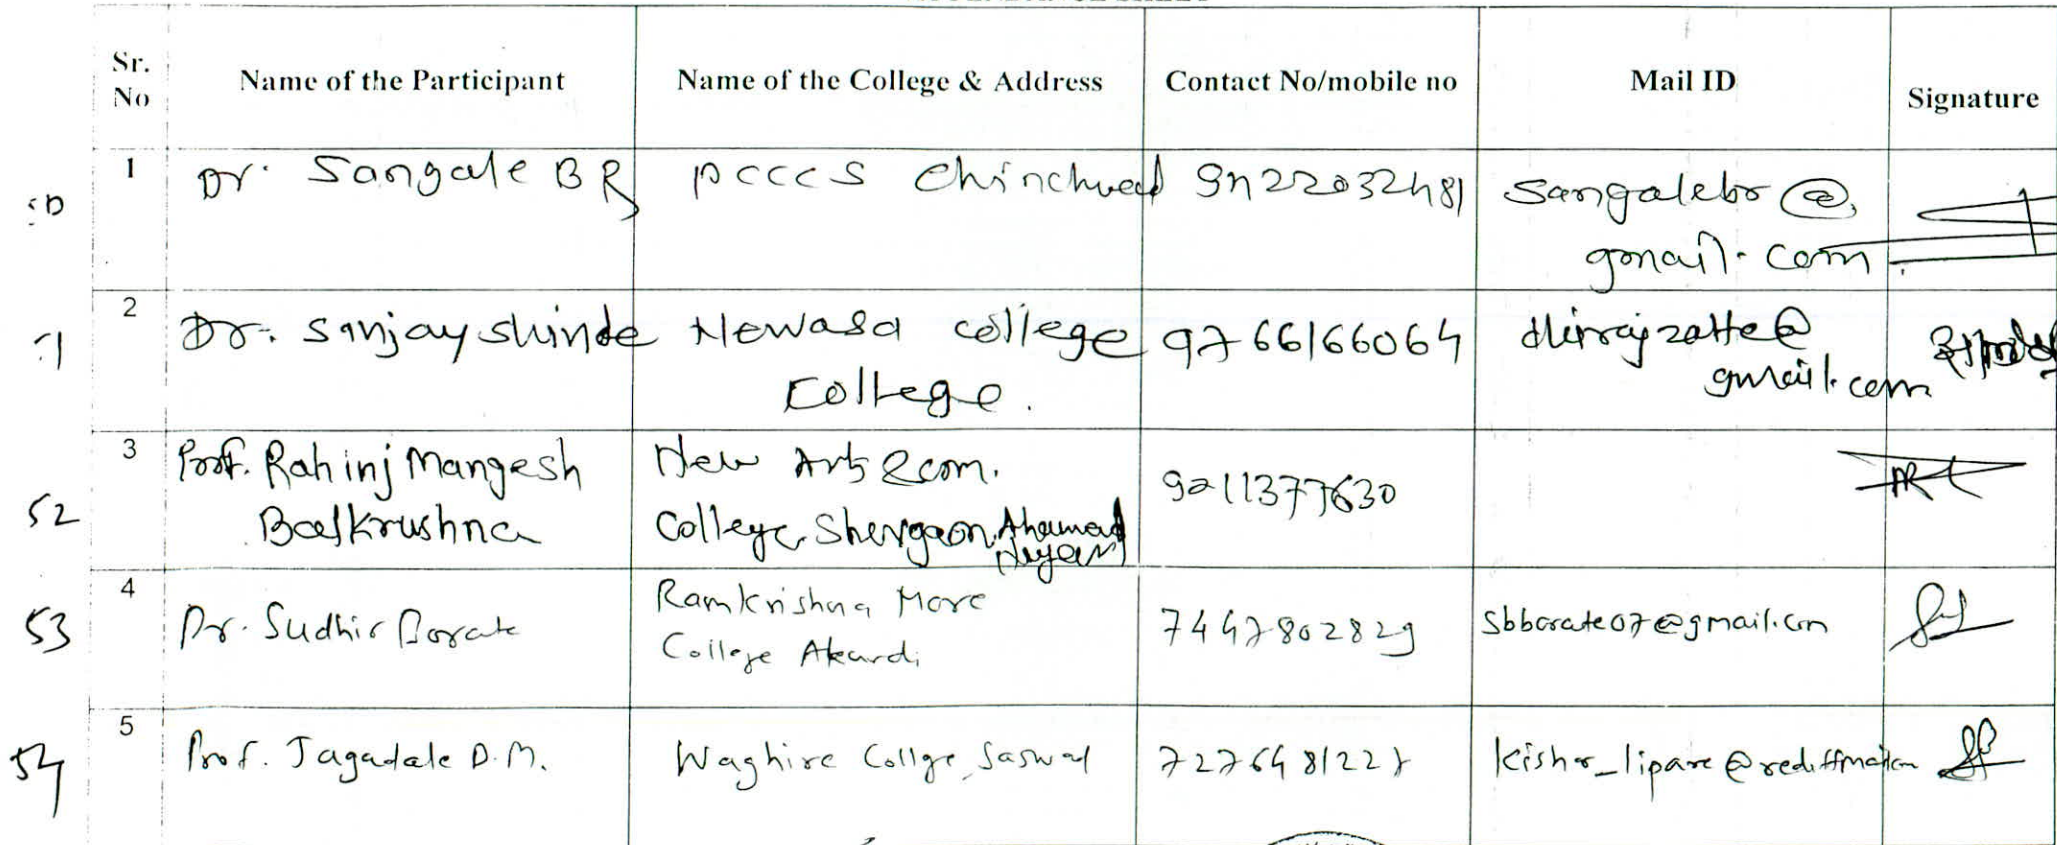 Sr. No
Name of the Participant
Name of the College & Address
Contact No/mobile no
Mail ID
Signature
1
Dr. Sangale B R
PCCCS Chinchwad
Sangalebr@
gmail.com
2
Dr. Sanjay shinde
Newasa college
College.
9766166064
gmail.com
52
3
Prof. Rahinj Mangesh
Balkrushna
New Arts & com.
College, Shevgaon, Ahamad
Nagar
53
4
Dr. Sudhir Borate
Ramkrishna More
College Akurdi
7447802829
sbborate07@gmail.com
54
5
Prof. Jagadale D.M.
Waghire Collge, Saswad
kishor_lipare@rediffmail.com